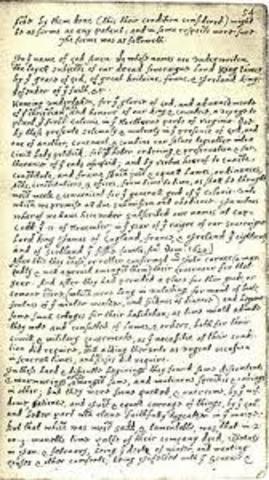 54
first by them done (this their condition considered) might
be as firme as any patent; and in some respects more sure.
The forme was as followeth.
In yᵉ name of god Amen. We whose names are underwriten,
the loyall subjects of our dread soveraigne Lord King James
by yᵉ grace of god, of great Britaine, franc, & Ireland king,
defender of yᵉ faith, &c.
Haveing undertaken, for yᵉ glorie of god, and advancemente
of yᵉ christian faith and honour of our king & countrie, a voyage to
plant yᵉ first colonie in yᵉ Northerne parts of Virginia. Doe
by these presents solemnly & mutualy in yᵉ presence of god, and
one of another, covenant, & combine our selves togeather into a
Civill body politick; for our better ordering, & preservation & fur-
therance of yᵉ ends aforesaid; and by vertue hearof to enacte,
constitute, and frame shuch just & equall Lawes, ordinances,
Acts, constitutions, & offices, from time to time, as shall be thought
most meete & convenient for yᵉ generall good of yᵉ Colonie: unto
which we promise all due submission and obedience. In witnes
wherof we have hereunder subscribed our names at Cap-
Codd yᵉ .11. of November, in yᵉ year of yᵉ raigne of our soveraigne
Lord king James of England, france, & Ireland yᵉ eighteenth
and of Scotland yᵉ fiftie fourth. Ano: Dom. 1620.
After this they chose, or rather confirmed mʳ John Carver (a man
godly & well approved amongst them) their Governour for that
year. And after they had provided a place for their goods, or
comone store, (which were long in unlading for want of boats,
foulnes of yᵉ winter weather, and sicknes of diverce) and begune
some small cottages for their habitation; as time would admitte
they mette and consulted of lawes, & orders, both for their
civill & military Governmente, as yᵉ necessitie of their condi-
tion did require, still adding therunto as urgent occasion
in severall times, and as cases did require.
In these hard & difficulte beginings they found some discontents
& murmurings arise amongst some, and mutinous speeches & carriages
in other; but they were soone quelled, & overcome, by yᵉ wis-
dome, patience, and just & equall carrage of things, by yᵉ Govʳ
and better part wᶜʰ clave faithfully togeather in yᵉ maine.
But that which was most sadd, & lamentable, was, that in 2.
or 3. moneths time halfe of their company dyed, espetialy
in Jan: & February, being yᵉ depth of winter, and wanting
houses & other comforts; being infected with yᵉ Scurvie &